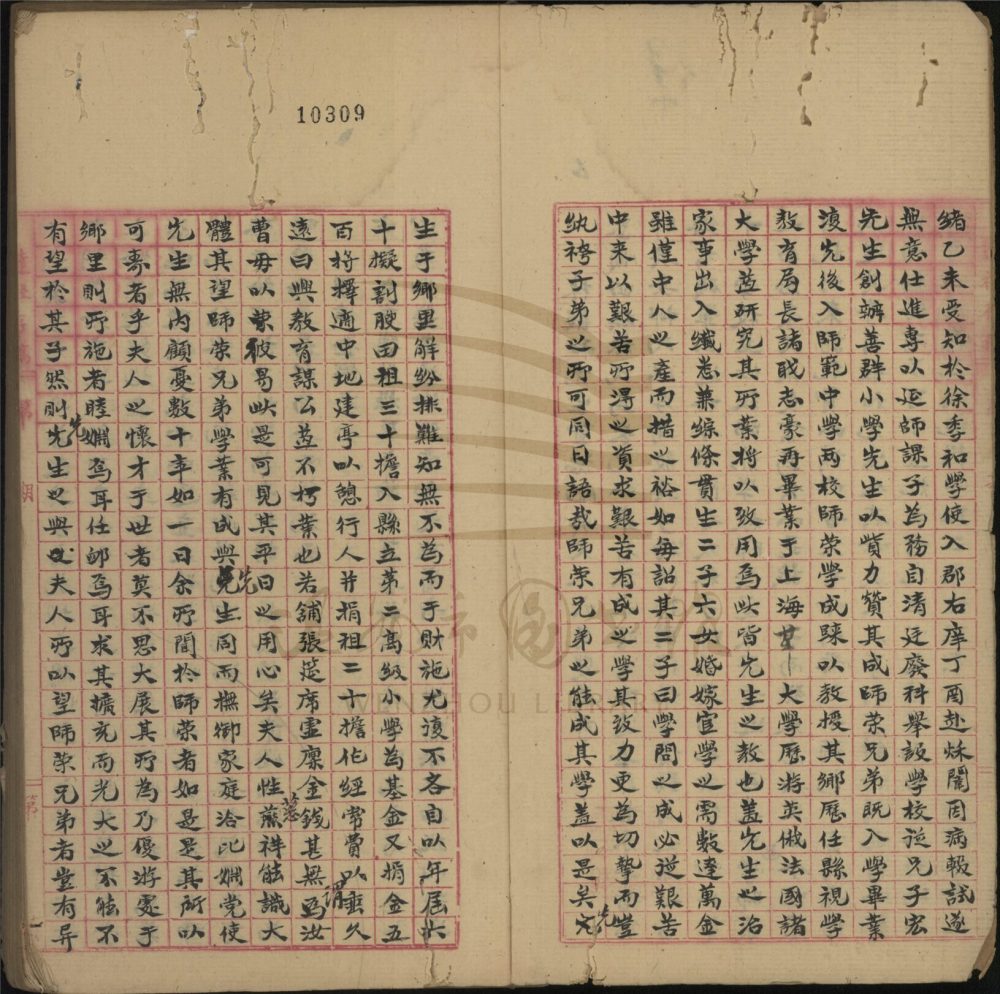 緒乙未受知於徐季和學使入郡右庠丁酉赴秋闈因病輟試遂
無意仕進專以延師課子為務自清廷廢科舉設學校從兄子宏
先生創辦善群小學先生以貲力贊其成師荣兄弟既入學畢業
復先後入師範中學两校師荣學成隸以教授其鄉歷任縣視學
教育局長諸戝志豪再畢業于上海大學歷游英俄法國諸
大學益研究其所業将以致用焉此皆先生之教也盖先生之治
家事出入纖悉兼綜條貫生二子六女婚嫁宦學之需数達萬金
雖僅中人之產而措之裕如每詔其二子曰學問之成必從艱苦
中来以艱苦所得之貲求艱苦有成之學其致力更為切摯而豈
紈袴子弟之所可同日語哉師荣兄弟之能成其學盖以是矣先
生于鄉里解紛排難知無不為而于財施尤復不吝自以年屆六
十擬割腴田租三十擔入縣立第二高級小學為基金又捐金五
百将擇適中地建亭以憩行人并捐租二十擔作經常費以垂久
遠曰興教育謀公益不朽業也若舖張筵席靈廪金錢甚無謂汝
曹毋以彼易此是可見其平日之用心矣夫人性慈祥能識大
體其望師荣兄弟學業有成與先生同而撫御家庭洽比婣党使
先生無内顧憂数十年如一日余所聞於師荣者如是是其所以
可壽者乎夫人之懷才于世者莫不思大展其所為乃優游處于
鄉里則所施者睦婣焉耳任卹焉耳求其擴充而光大之不能不
有望於其子然則先生之與夫人所以望師荣兄弟者豈有异
10309